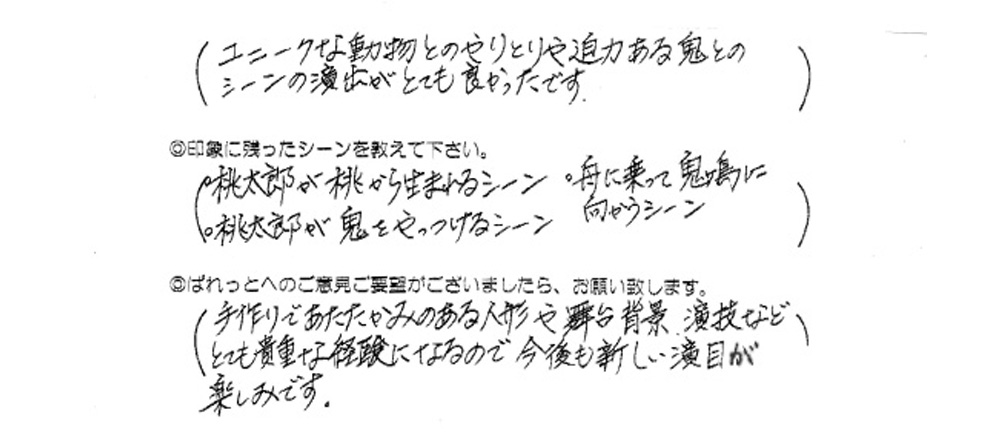 ユニークな動物とのやりとりや迫力ある鬼との
シーンの演出がとても良かったです.
◎印象に残ったシーンを教えて下さい。
○桃太郎が桃から生まれるシーン ○舟に乗って鬼ヶ島に
向かうシーン
○桃太郎が鬼をやっつけるシーン
◎ぱれっとへのご意見ご要望がございましたら、お願い致します。
手作りであたたかみのある人形や舞台背景、演技など
とても貴重な経験になるので今後も新しい演目が
楽しみです.